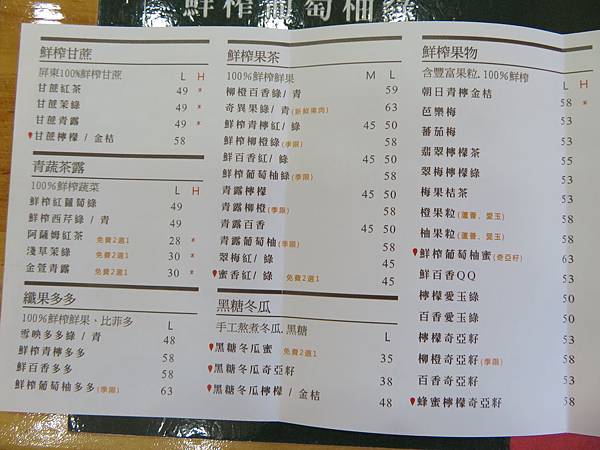 鮮榨葡萄柚綠
鮮榨甘蔗
屏東100%鮮榨甘蔗 L H
甘蔗紅茶 49 *
甘蔗茉綠 49 *
甘蔗青露 49 *
甘蔗檸檬 / 金桔 58
青蔬茶露
100%鮮榨蔬菜 L H
鮮榨紅蘿蔔綠 49
鮮榨西芹綠 / 青 49
阿薩姆紅茶 免費2選1 28 *
淺草茉綠 免費2選1 30 *
金萱青露 免費2選1 30 *
纖果多多
100%鮮榨鮮果、比菲多 L
雪映多多綠 / 青 48
鮮榨青檸多多 58
鮮百香多多 58
鮮榨葡萄柚多多(季限) 63
鮮榨果茶
100%鮮榨鮮果 M L
柳橙百香綠/ 青 59
奇異果綠/ 青(新鮮果肉) 63
鮮榨青檸紅/ 綠 45 50
鮮榨柳橙綠(季限) 58
鮮百香紅/ 綠 45 50
鮮榨葡萄柚綠(季限) 58
青露檸檬 45 50
青露柳橙(季限) 58
青露百香 45 50
青露葡萄柚(季限) 58
翠梅紅/ 綠 45
蜜香紅/ 綠 免費2選1 45
黑糖冬瓜
手工熬煮冬瓜.黑糖 L
黑糖冬瓜蜜 免費2選1 35
黑糖冬瓜奇亞籽 38
黑糖冬瓜檸檬 / 金桔 48
鮮榨果物
含豐富果粒.100%鮮榨 L H
朝日青檸金桔 58 *
芭樂梅 53
蕃茄梅 53
翡翠檸檬茶 55
翠梅檸檬綠 53
梅果桔茶 53
橙果粒(蘆薈、愛玉) 58
柚果粒(蘆薈、愛玉) 58
鮮榨葡萄柚蜜(奇亞籽) 63
鮮百香QQ 53
檸檬愛玉綠 50
百香愛玉綠 50
檸檬奇亞籽 53
柳橙奇亞籽(季限) 58
百香奇亞籽 53
蜂蜜檸檬奇亞籽 58